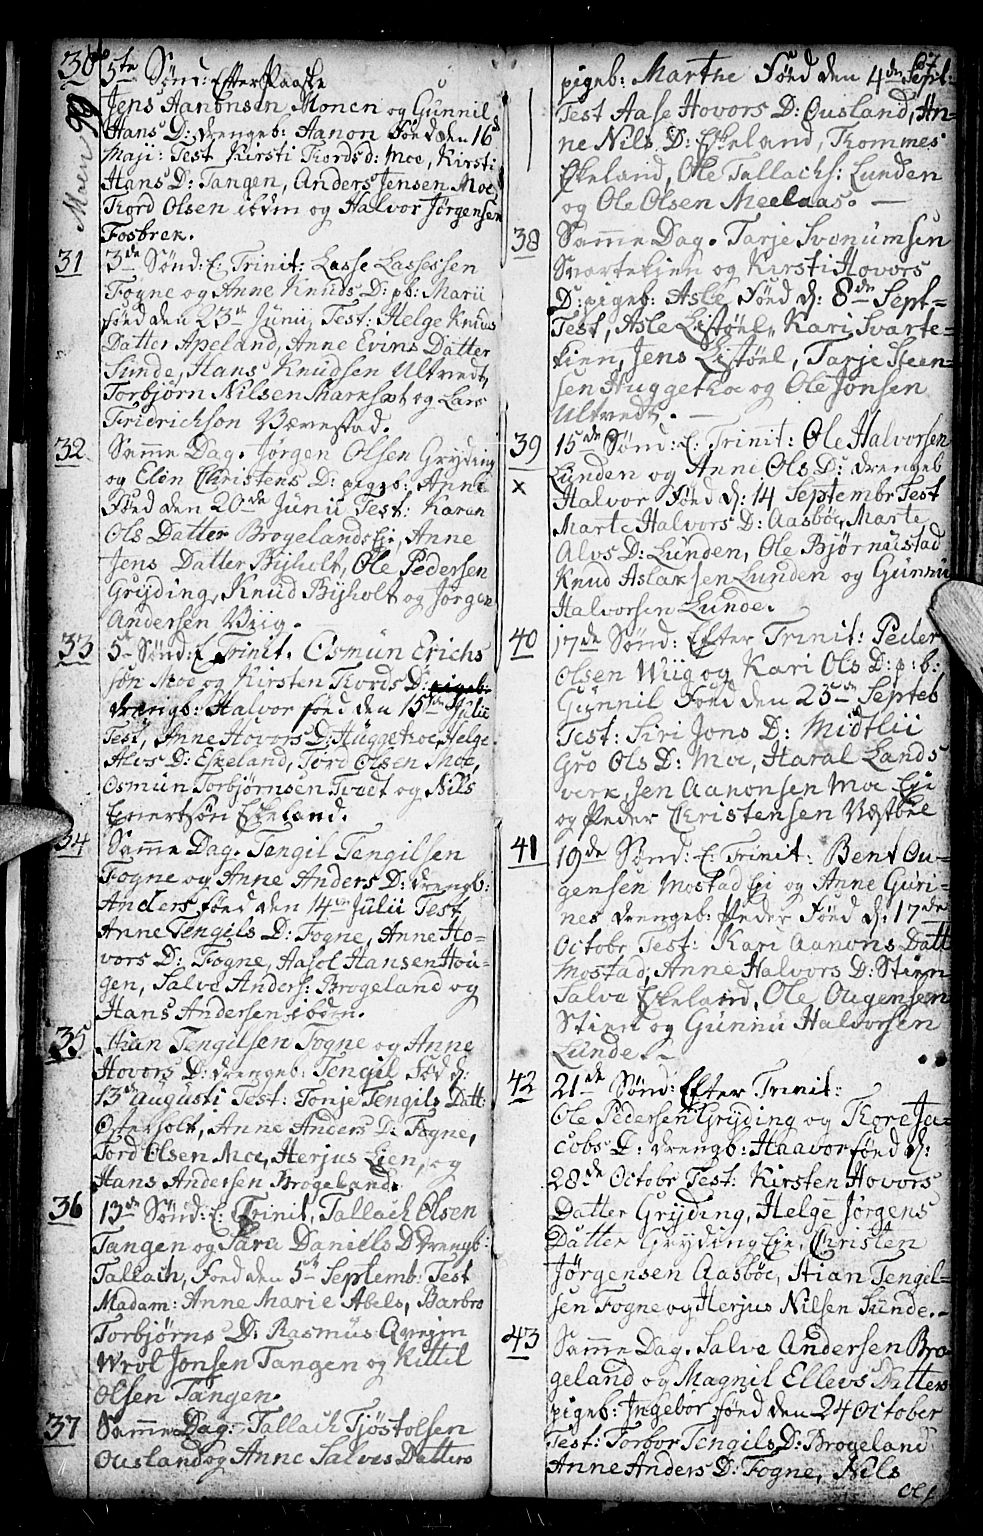 30 5te Sønd: Efter Paaske
Jens Aanonsen Monen og Gunnil
Hans D: drengeb: Aanon Fød den 16
Maji: Test Kirsti Tordsd: Moe, Kirsti
Hans D: Tangen, Anders Jensen Moe,
Tord Olsen ibdm og Halvor Jørgensen
Fosbrek.
Moen
31 3de Sønd: E: Trinit: Lasse Lassesen
Fogne og Anne Knuds D: pb: Marii
fød den 23de Junii, Test: Helge Knuds
Datter Apeland, Anne Evins Datter
Sunde, Hans Knudsen Ultvedt,
Torbjørn Nilsen Skarksæt og Lars
Fridrichson Bævestad.
32 Samme Dag. Jørgen Olsen Gryding
og Elen Christens D: pigeb: Anne
Fød den 20de Junii Test: Karen
Ols Datter Brogelands Eje, Anne
Jens Datter Bijholt, Ole Pedersen
Gryding, Knud Bijholt og Jørgen
Andersen Viig.
33 5te Sønd: E Trinit. Osmun Erichs
søn Moe og Kirsten Tords D: pigeb:
drengb: Halvor fød den 15de Julii
Test, Anne Hovors D: Huggethoe, Helge
Alvs D: Ekeland, Tord Olsen Moe,
Osmun Torbjørnsen Tvedt og Nills
Evertsøn Ekeland.
34 Samme Dag. Tengil Tengilsen
Fogne og Anne Anders D: drengb:
Anders fød den 14de Julii Test
Anne Tengils D: Fogne, Anne Ho-
vors D: Fogne, Aasol Hansen Hou-
gen, Salve Anders: Brogeland og
Hans Andersen ibdm.
35 Stian Tengilsen Fogne og Anne
Hovors D: drengeb: Tengil Fød d:
13de Augusti Test: Tonje Tengils Datt:
Osterholt, Anne Anders D: Fogne,
Tord Olsen Moe, Herjus Lien, og
Hans Andersen Brogeland.
36 13de Sønd: E: Trinit, Tallach Olsen
Tangen og Sara Daniels D drengb:
Tallach, Fød den 5te Septemb: Test
Madam: Anne Marie Abels, Barbro
Torbjørns D: Rasmus
Wrol Jonsen Tangen og Kittil
Olsen Tangen.
37 Samme Dag: Tallach Tjøstolsen
Ousland og Anne Salves Datters
67
pigeb: Marthe Fød den 4de Sept:
Test Aase Hovors D: Ousland, An-
ne Nils D: Ekeland, Tommes
Ekeland, Ole Tallachs: Lunden
og Ole Olsen Meelaas. —
38 Samme Dag. Tarje Svenumsen
Svartekjen og Kirsti Hovors
D: pigeb: Asle, Fød d: 8de Sept-
Test, Asle Listøel, Kari Svarte-
kien, Jens Listøel, Tarje Steen-
sen Huggethoe og Ole Jonsen
Ultvedt. —
39 15de Sønd: E: Trinit: Ole Halvorsen
Lunden og Anne Ols D: drengeb
x Halvor Fød d: 14 Septembr Test
Marte Halvors D: Aasbøe, Marte
Alvs D: Lunden, Ole Bjørnustad
Knud Aslaksen Lunden og Gunnu
Halvorsen Lunde.
40 17de Sønd: Efter Trinit: Peder
Olsen Wiig og Kari Ols D: p: b:
Gunnil Fød den 23de Septeb
Test: Siri Jons D: Midtlii
Gro Ols D: Moe, Haral Lands
verk, Jen Aanonsen Moe Eje
og Peder Christensen Vestbøe
41 19de Sønd: E: Trinit: Bent Ou-
gensen Mostad Eje og Anne Guri-
nes drengeb: Peder Fød d: 17de
Octobr, Test: Kari Aanons Datt
Mostad, Anne Halvors D: Steen
Salve Ekeland, Ole Ougensen
Stien og Gunnu Halvorsen
Lunde. -
42 21de Sønd: Efter Trinit:
Ole Pedersen Gryding og Thore Ja-
cobs D: drengb: Haavor fød d:
28de Octobr Test: Kirsten Hovors
Datter Gryding, Helge Jørgens
Datter Gryding Eje, Christen
Jørgensen Aasbøe, Stian Tengil-
sen Fogne og Herjus Nilsen Sunde. -
43 Samme Dag. Salve Andersen Bro-
geland og Magnil Ellevs Datters
pigeb: Ingebor fød den 24 October
Test: Torbor Tengils D: Brogeland
Anne Anders D: Fogne, Nils